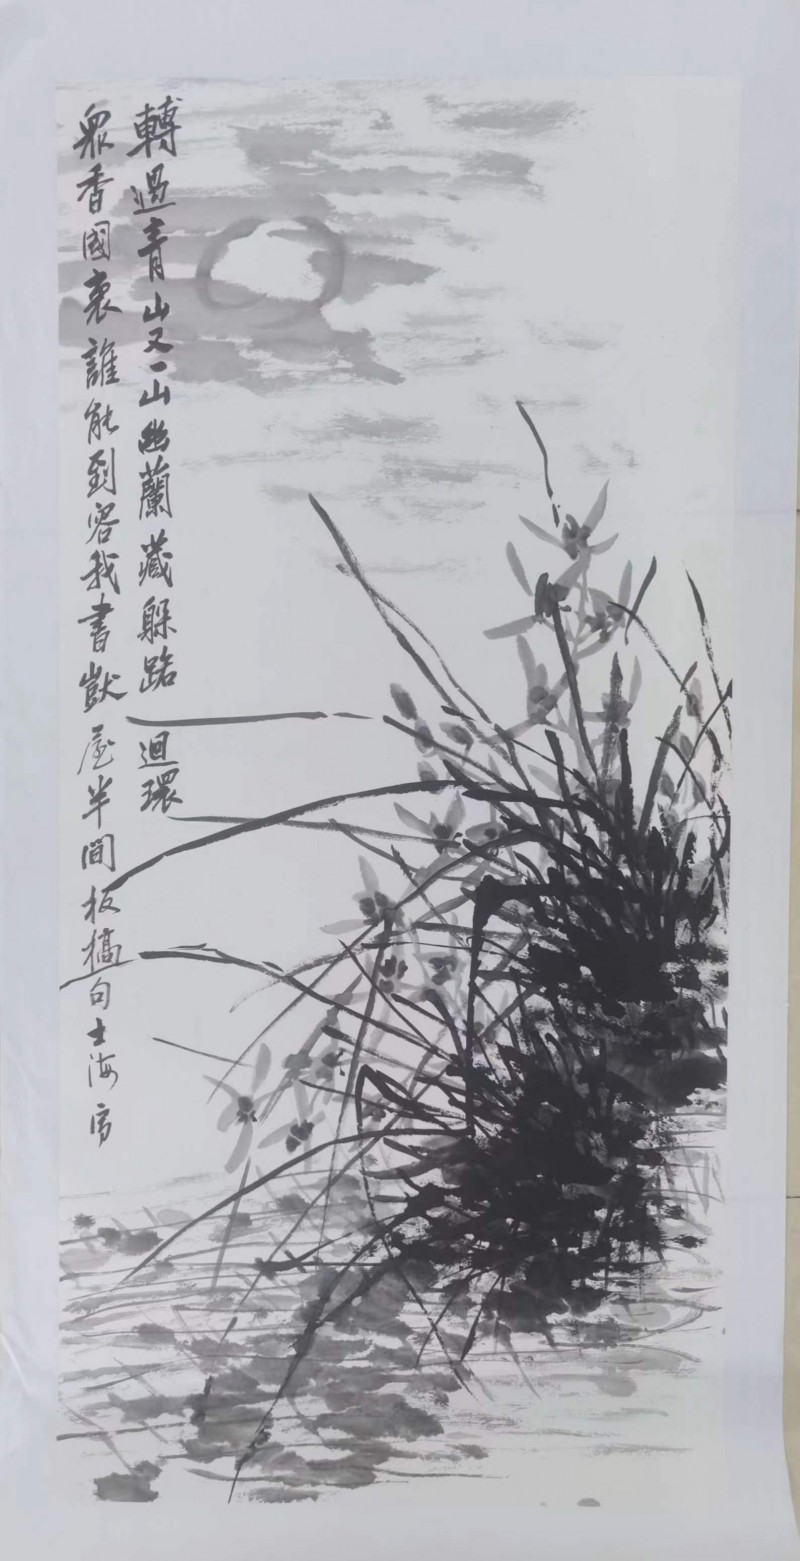 轉過青山又一山幽蘭藏躲路迴環
眾香國裏誰能到容我書獃屋半間板橋句士海寫